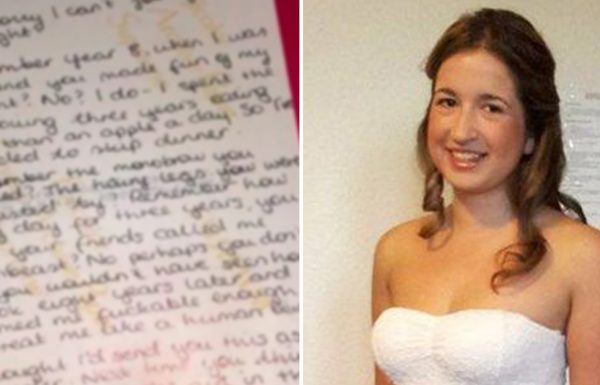 sorry I can't
ght
ember year 8, when I was
and you made fun of my
nt? No? I do - I spent the
owing three years eating
than an apple a day. So
ded to skip dinner
ember the monobrow you
ed? The hairy legs you were
usted by? Remember how
y day for three years, you
your friends called me
nbeast? No perhaps you don't
you wouldn't have seen how
ok eight years later and
med me fuckable enough
reat me like a human
ought I'd send you this as
er. Next time you